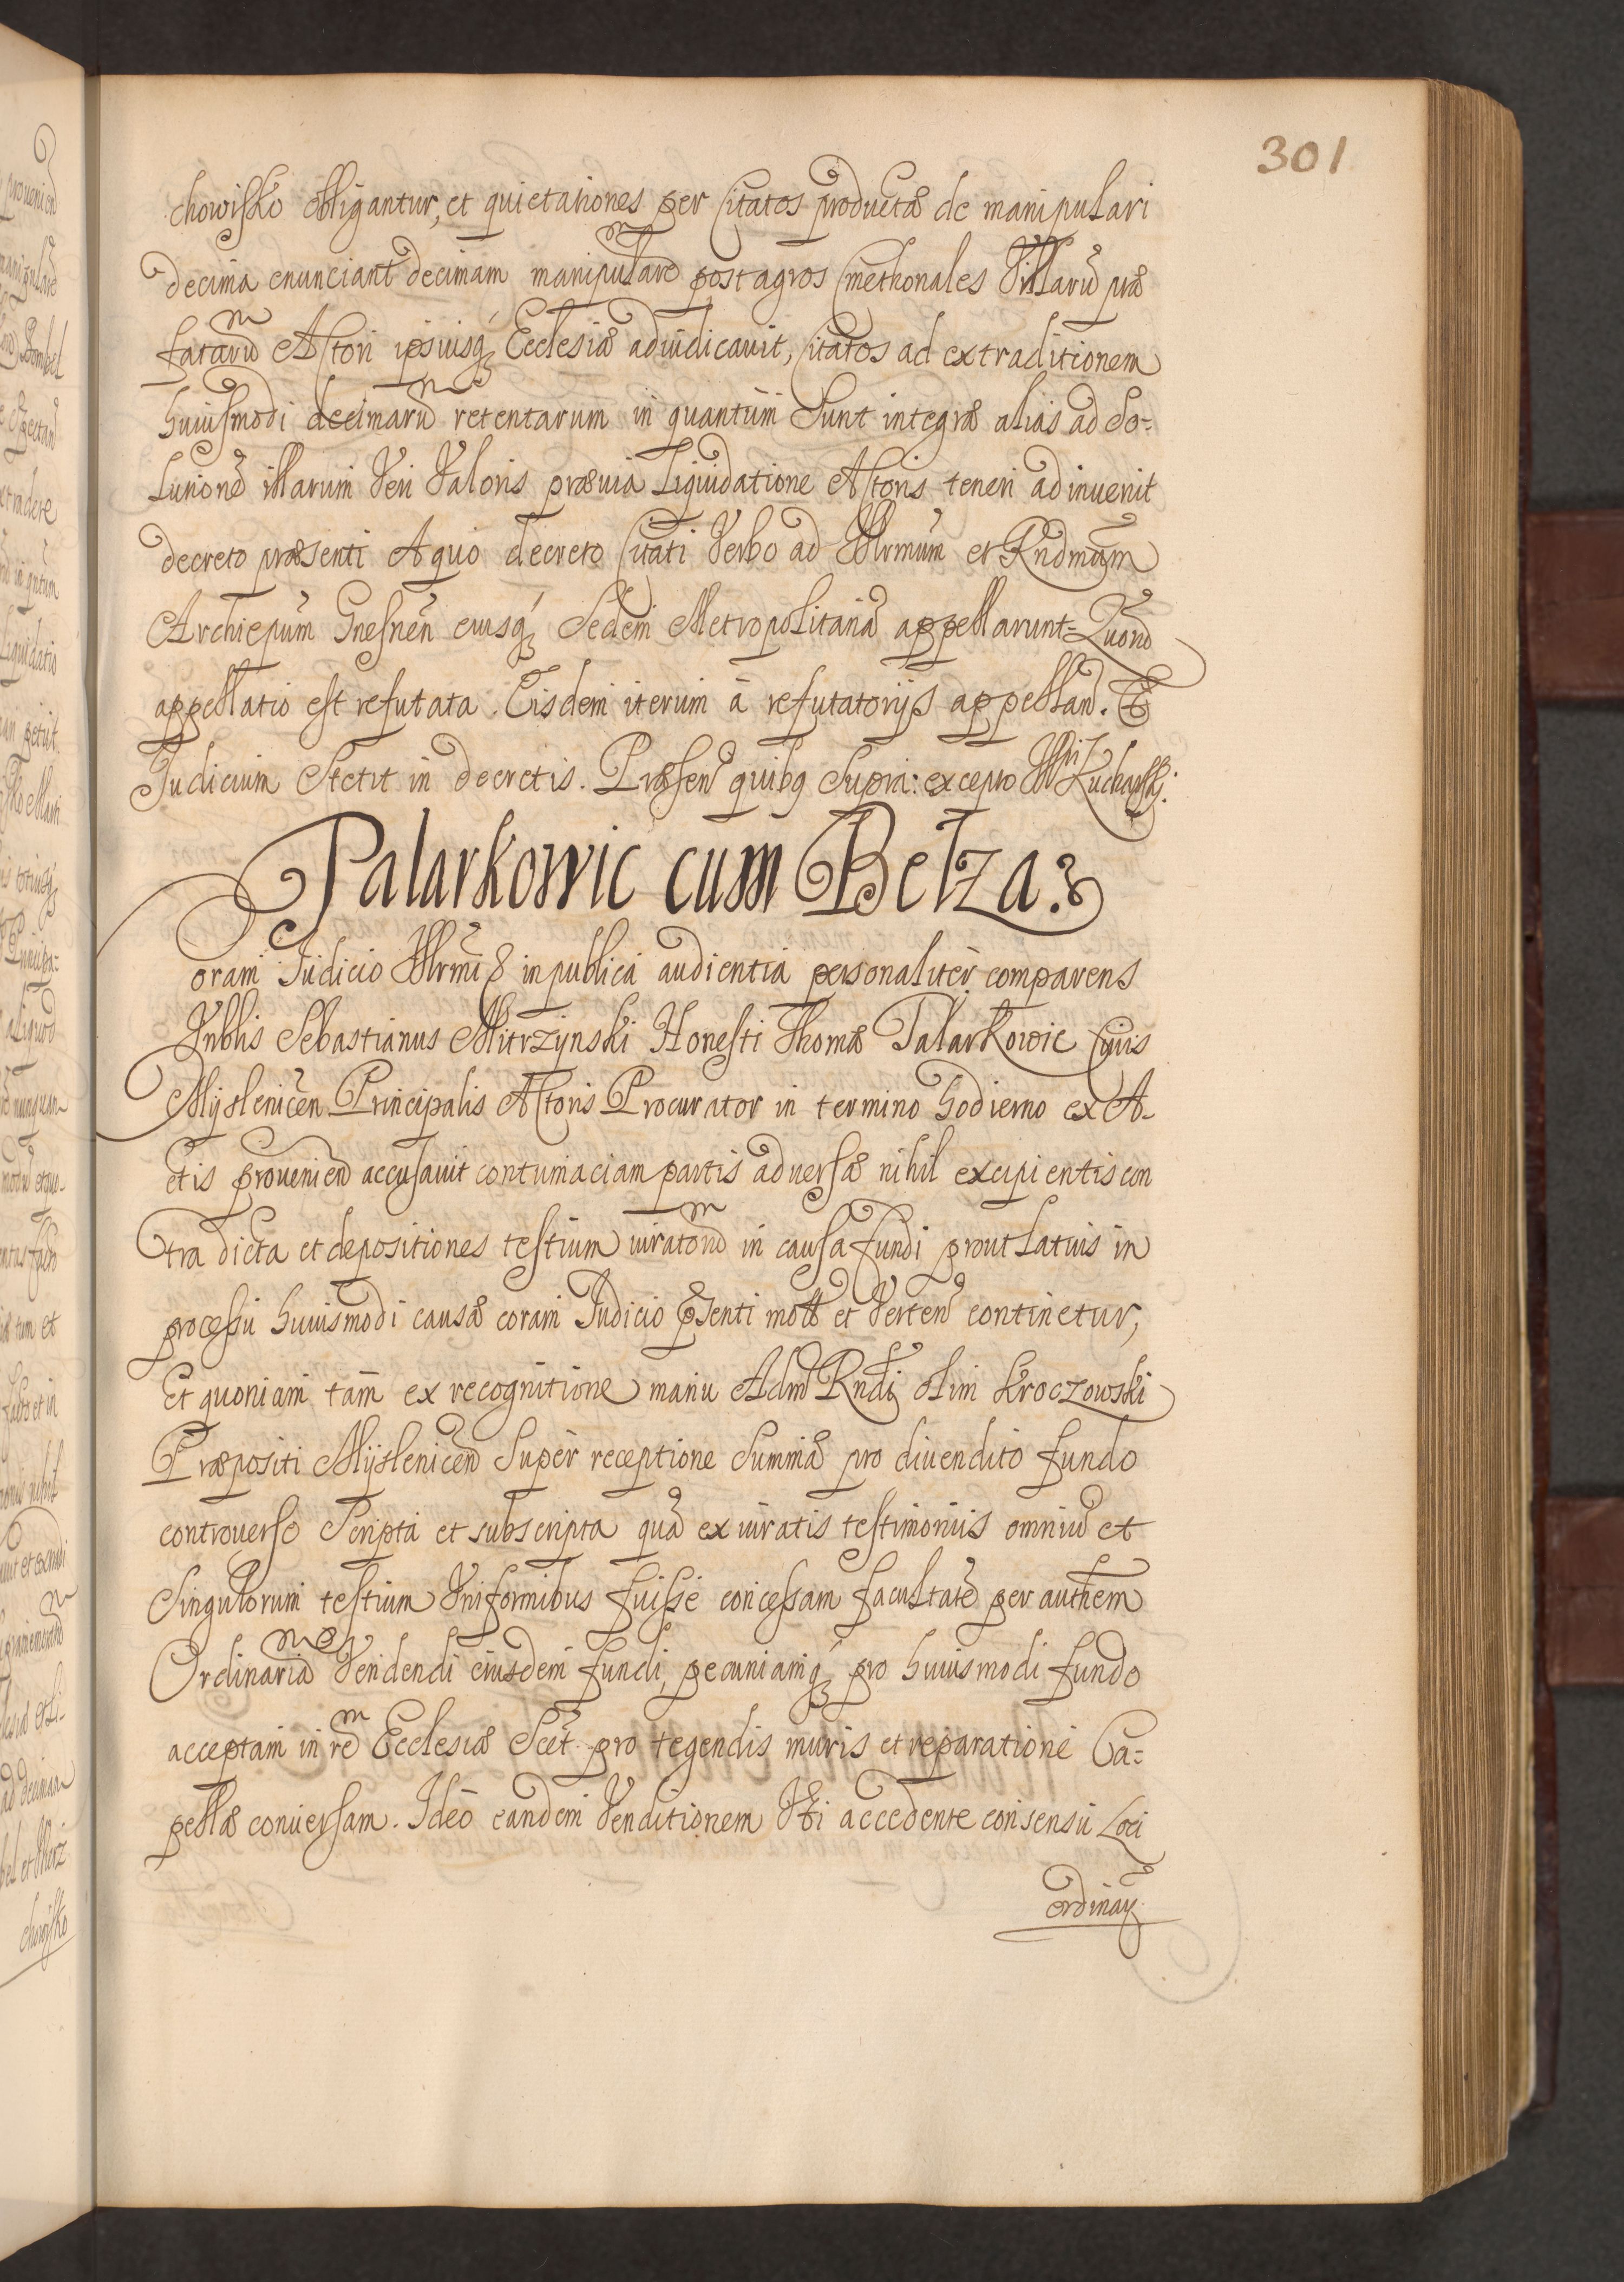 301
chowisko obligantur, et quietationes per Citatos productæ de manipulari
decima enunciant decimam manipularē post agros Cmethonales Villarū præ
fatarū Actori ipsiusq₃ Ecclesiæ adiudicauit, Citatos ad extraditionem
huiusmodi decimarū retentarum in quantum Sunt integræ alias ad So-
lutionē illarum Veri Valoris præuia Liquidatione Actoris teneri adinuenit
decreto præsenti A quo decreto Citati Verbo ad Illrmum et Rndmum
Archiepum Gnesnen eiusq₃ Sedem Metropolitanā appellarunt Quorū
appellatio est refutata. Eisdem iterum à refutatorijs appellan. Et
Judicium Stetit in decretis. Præsen quibq Supra: excepto Kucharski.
Palarkowic cum Belza.
oram Judicio Illrmi & in publica audientia personaliter comparens
Nobilis Sebastianus Mitrzynski Honesti Thomæ Palarkowic Ciuis
Myslenicen Principalis Actoris Procurator in termino hodierno ex A-
ctis prouenien accusauit contumaciam partis aduersæ nihil excipientis con
tra dicta et depositiones testium iuratorū in causa fundi prout latius in
processu huiusmodi causæ coram Judicio Psenti mott et Verten continetur,
Et quoniam tam ex recognitione manu Adm Rndi olim Kroczowski
Præpositi Myslenicen Super receptione Summæ pro diuendito fundo
controuerso Scripta et subscripta quā ex iuratis testimoniis omniū et
Singulorum testium Uniformibus fuisse concessam facultatē per authem
Ordinariā Vendendi eiusdem fundi, pecuniamq₃ pro huiusmodi fundo
acceptam in rē Ecclesiæ Scet pro tegendis muris et reparatione Ca-
pellæ conuersam. Ideo eandem Venditionem Uti accedente consensu Loci
ordinarij